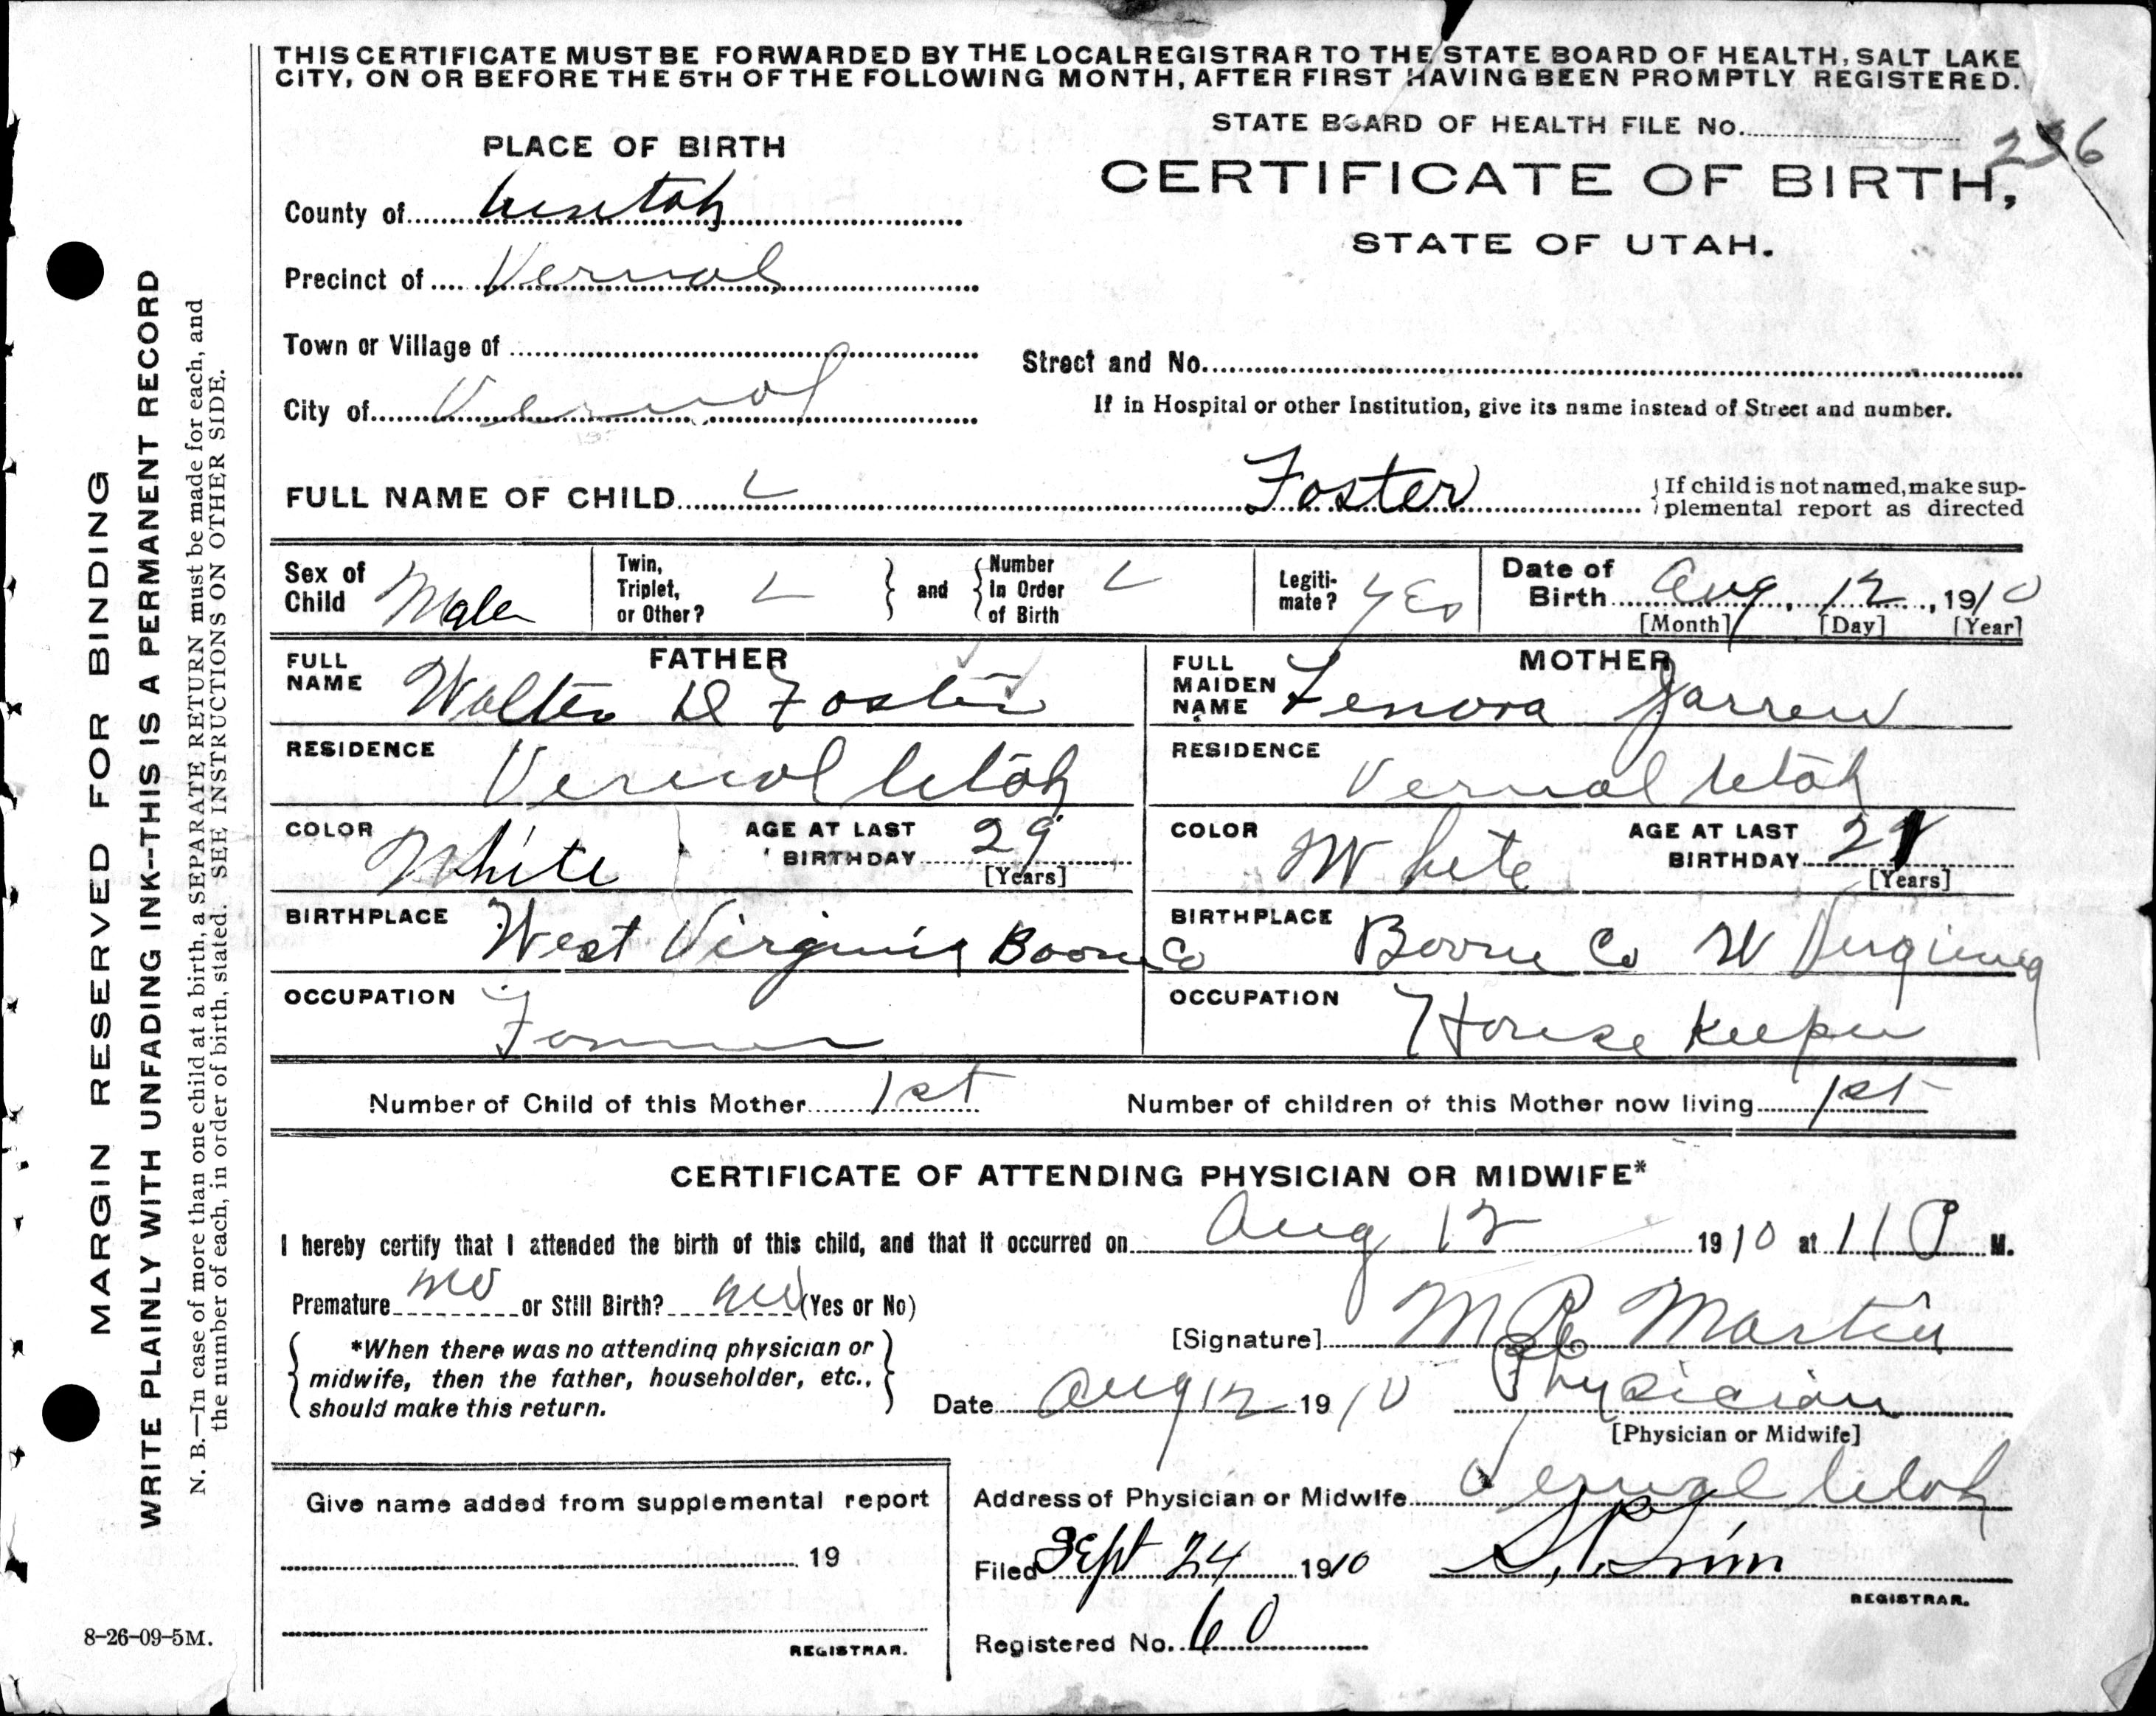 THIS CERTIFICATE MUST BE FORWARDED BY THE LOCAL REGISTRAR TO THE STATE BOARD OF HEALTH, SALT LAKE
CITY, ON OR BEFORE THE 5TH OF THE FOLLOWING MONTH, AFTER FIRST HAVING BEEN PROMPTLY REGISTERED.
STATE BOARD OF HEALTH FILE No.
PLACE OF BIRTH
CERTIFICATE OF BIRTH,
STATE OF UTAH.
County of Uintah
Precinct of Vernal
Town or Village of
Street and No.
City of Vernal
If in Hospital or other Institution, give its name instead of Street and number.
FULL NAME OF CHILD Foster
If child is not named, make sup-
plemental report as directed
Sex of Child Male
Twin, Triplet, or Other?
and
Number In Order of Birth
Legiti-mate? Yes
Date of Birth Aug 12, 1910
[Month] [Day] [Year]
FATHER
FULL NAME Walter D Foster
MOTHER
FULL MAIDEN NAME Lenora Jarrell
RESIDENCE Vernal Utah
RESIDENCE Vernal Utah
COLOR White
AGE AT LAST BIRTHDAY 29
[Years]
COLOR White
AGE AT LAST BIRTHDAY
[Years]
BIRTHPLACE West Virginia Boone Co
BIRTHPLACE Boone Co W Virginia
OCCUPATION Farmer
OCCUPATION House Keeper
Number of Child of this Mother 1st
Number of children of this Mother now living 1st
CERTIFICATE OF ATTENDING PHYSICIAN OR MIDWIFE*
I hereby certify that I attended the birth of this child, and that it occurred on Aug 12 1910 at 11 P M.
Premature no or Still Birth? no (Yes or No)
*When there was no attending physician or
midwife, then the father, householder, etc.,
should make this return.
[Signature] Martin
Date Aug 12 1910 Physician
[Physician or Midwife]
Give name added from supplemental report
19
REGISTRAR.
Address of Physician or Midwife Vernal Utah
Filed Sept 24 1910
REGISTRAR.
Registered No. 60
8-26-09-5M.
MARGIN RESERVED FOR BINDING
WRITE PLAINLY WITH UNFADING INK--THIS IS A PERMANENT RECORD
N. B.—In case of more than one child at a birth, a SEPARATE RETURN must be made for each, and
the number of each, in order of birth, stated. SEE INSTRUCTIONS ON OTHER SIDE.